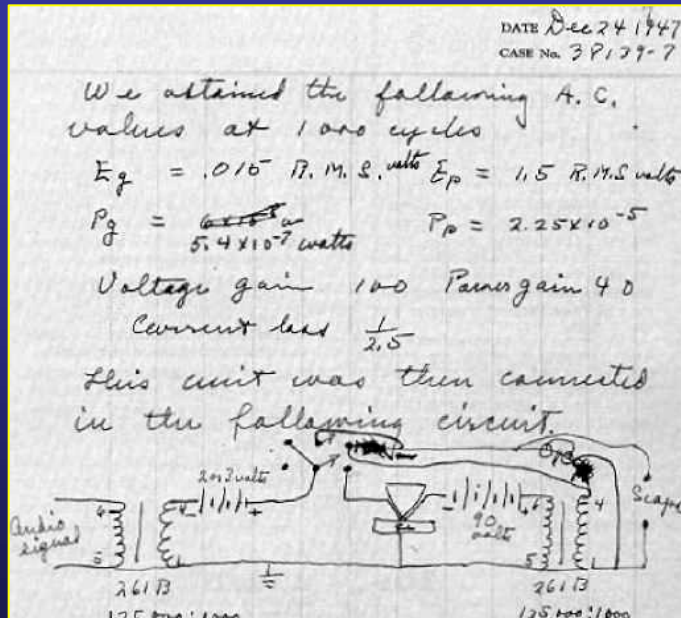 DATE Dec 24 1947
CASE No. 38139-7
We obtained the following A.C.
values at 1000 cycles
Eg = .015 R.M.S. volts Ep = 1.5 R.M.S volts
Pg = 5.4 x 10⁻⁷ watts Pp = 2.25 x 10⁻⁵
Voltage gain 100 Power gain 40
Current loss 1/2.5
This unit was then connected
in the following circuit.
2 or 3 volts
Audio signal
90 volts
Scope
6 4 - + - + 6 4
5 1 5 1
261B 261B
125,000:1000 125,000:1000